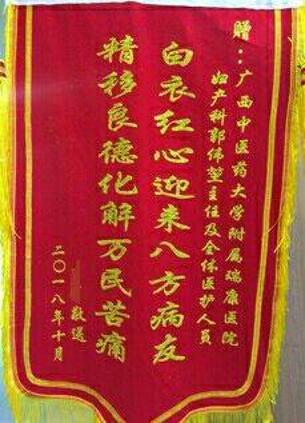 赠：广西中医药大学附属瑞康医院
妇产科郭伟堃主任及全体医护人员
白衣红心迎来八方病友
精移良德化解万民苦痛
敬送
二〇一八年十月